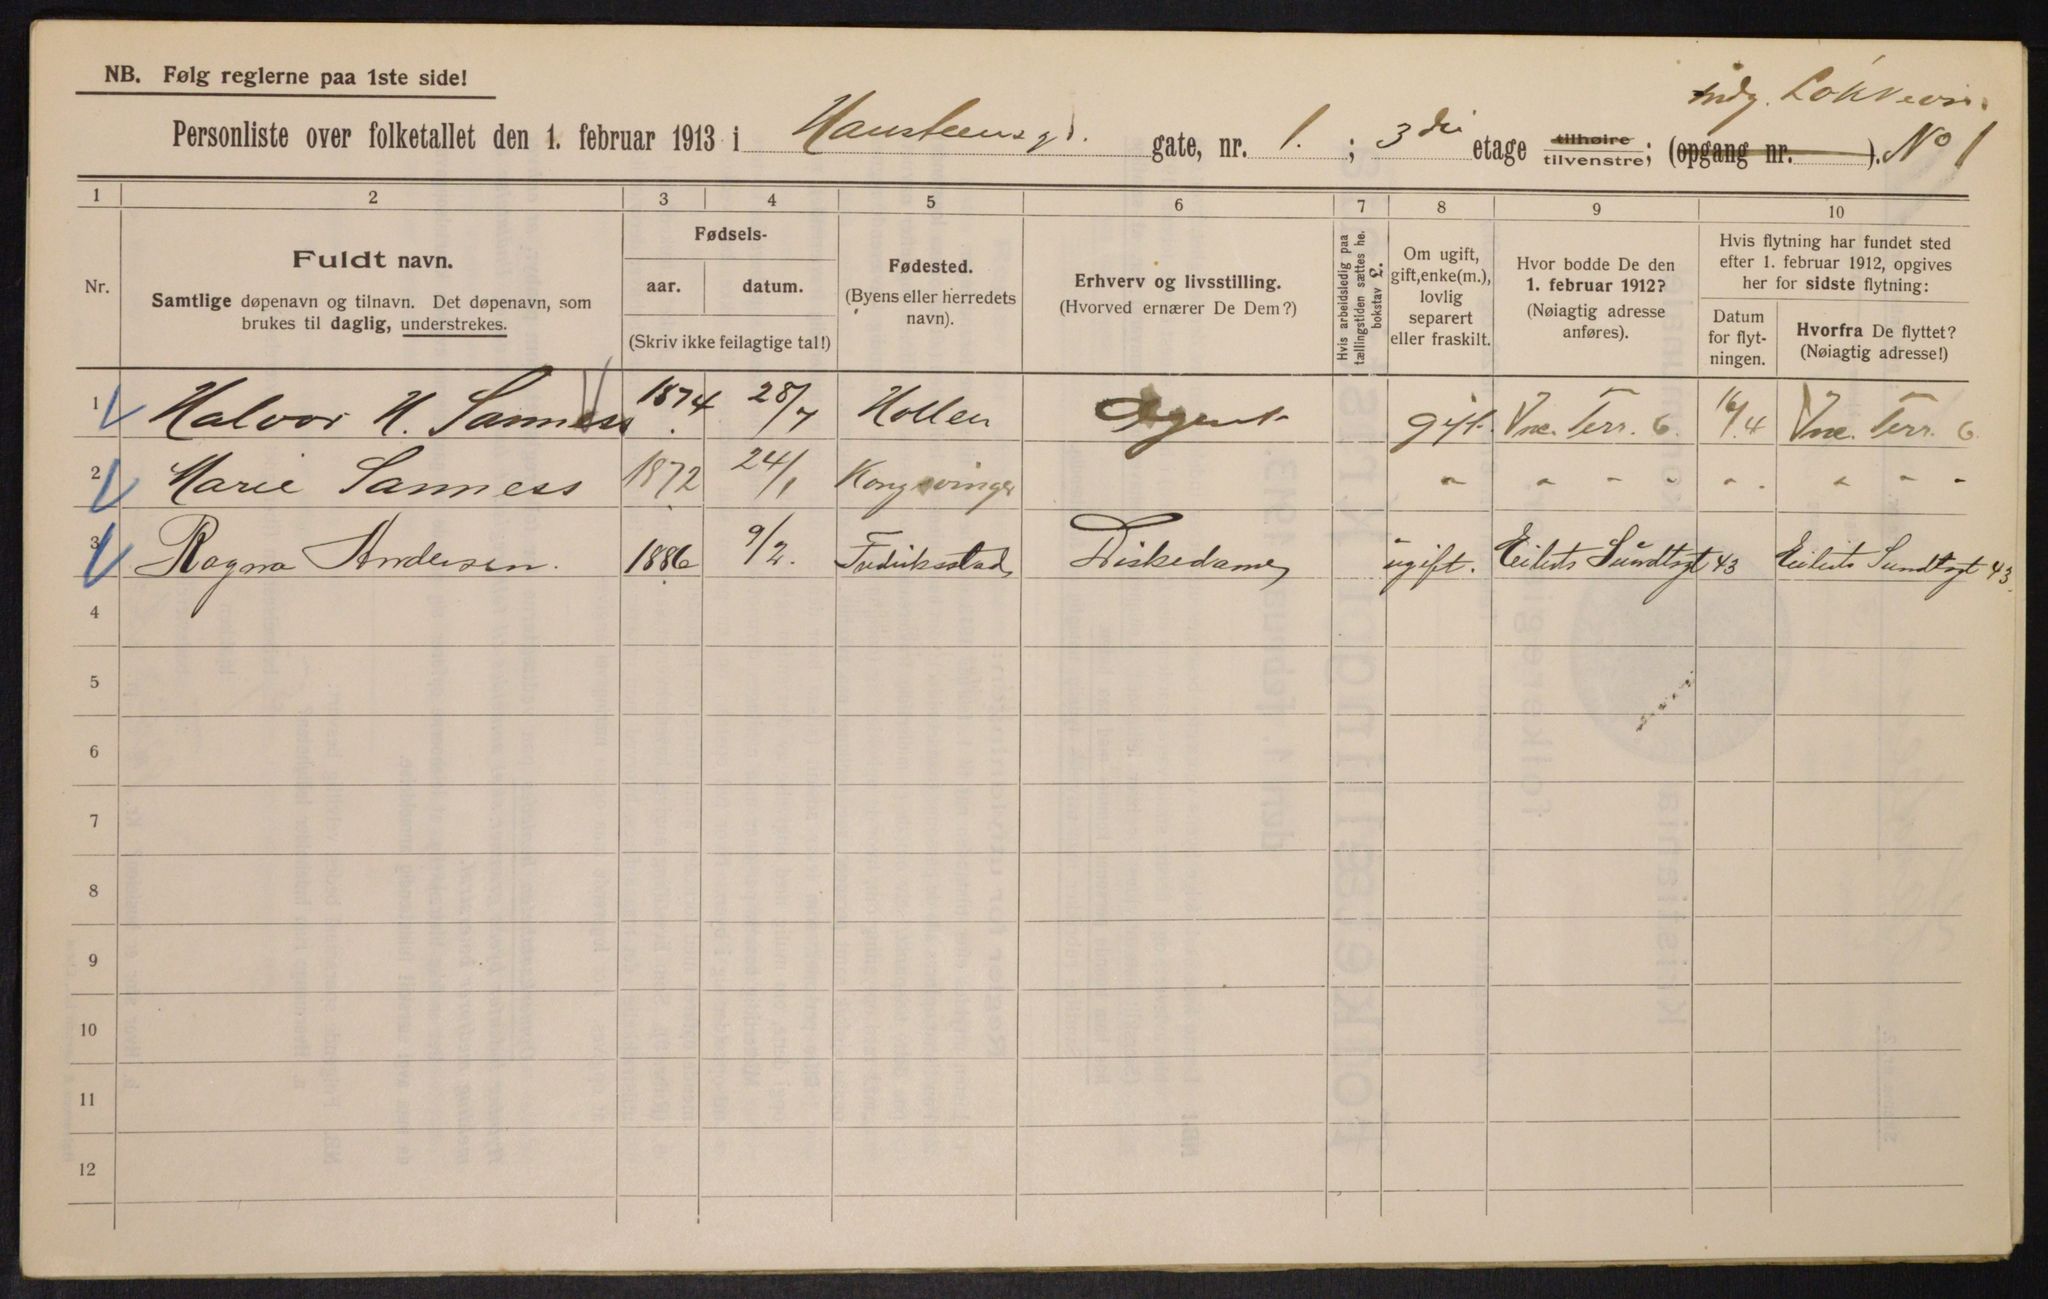 NB. Følg reglerne paa 1ste side!
indg. Løkkevn.
Personliste over folketallet den 1. februar 1913 i Hansteensgt. gate, nr. 1. ; 3die etage tilhøire tilvenstre; (opgang nr. ). No 1
1 2 3 4 5 6 7 8 9 10
Nr.
Fuldt navn.
Samtlige døpenavn og tilnavn. Det døpenavn, som
brukes til daglig, understrekes.
Fødsels-
aar. datum.
(Skriv ikke feilagtige tal!)
Fødested.
(Byens eller herredets
navn).
Erhverv og livsstilling.
(Hvorved ernærer De Dem?)
Hvis arbeidsledig paa
tællingstiden sættes her
bokstav L.
Om ugift,
gift, enke(m.),
lovlig
separert
eller fraskilt.
Hvor bodde De den
1. februar 1912?
(Nøiagtig adresse
anføres).
Hvis flytning har fundet sted
efter 1. februar 1912, opgives
her for sidste flytning:
Datum
for flyt-
ningen.
Hvorfra De flyttet?
(Nøiagtig adresse!)
1 Halvor H. Sanness 1874 28/7 Hollen Agent gift. Vne. Terr. 6. 16/4 Vne. Terr. 6
2 Marie Sanness 1872 24/1 Kongsvinger " " " " " " " " " "
3 Ragna Andersen. 1886 9/2. Fredriksstad Diskedame ugift. Eilerts Sundtsgt 43 Eilerts Sundtsgt 43
4
5
6
7
8
9
10
11
12